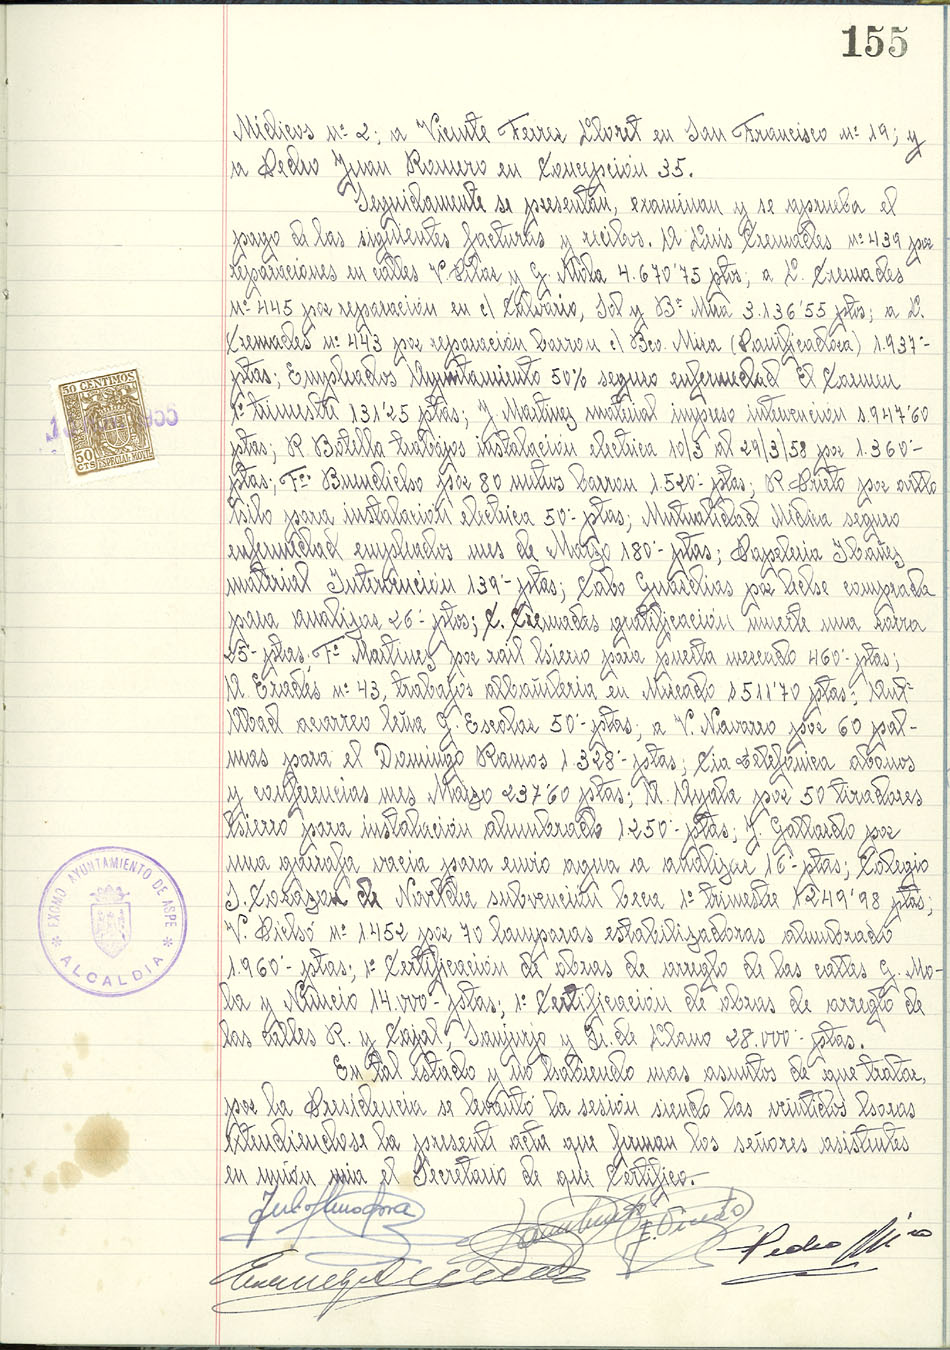 155
Médicos nº 2; a Vicente Ferrer Lloret en San Francisco nº 19; y
a Pedro Juan Romero en Concepción 35.
Seguidamente se presentan, examinan y se aprueba el
pago de las siguientes facturas y recibos. A Luis Cremades nº 439 por
reparaciones en calles V. Pilar y G. Mola 4.670'75 ptas; a L. Cremades
nº 445 por reparación en c/ Calvario, Sol y Bº Mira 3.136'55 ptas; a L.
Cremades nº 443 por reparación barron c/ Bco. Mira (Panificadora) 1.937'-
ptas; Empleados Ayuntamiento 50% seguro enfermedad El Carmen
1º trimestre 131'25 ptas; J. Martinez material impreso intervención 1.947'60
ptas; R. Botella trabajos instalación electrica 10/3 al 29/3/58 por 1.360'-
ptas; Fº por 80 barron 1.520'- ptas; R. Prieto por
para instalación electrica 50'- ptas; Mutualidad Médica seguro
enfermedad empleados mes de Marzo 180'- ptas; Papeleria Ibañez
material Intervención 139'- ptas; Cabo Guardias por leche comprada
para analizar 26'- ptas; C. Cremades gratificación muerte una zorra
25'- ptas. Fº Martinez por rail hierro para puerta mercado 460'- ptas;
A. nº 43, trabajos albañileria en Mercado 1511'70 ptas;
acarreo leña G. Escolar 50'- ptas; a V. Navarro por 60 pal-
mas para el Domingo Ramos 1.328'- ptas; Cia Telefónica abonos
y conferencias mes Marzo 237'60 ptas; M. Ayala por 50 tiradores
hierro para instalación alumbrado 1250'- ptas; J. Gallardo por
una garrafa vacia para envio agua a analizar 16'- ptas; Colegio
S. Corazon de Novelda subvención beca 1º trimestre 1249'98 ptas;
V. Bielsó nº 1452 por 70 lamparas estabilizadoras alumbrado
1.960'- ptas; 1ª Certificación de obras de arreglo de las calles G. Mo-
la y Nuncio 14.000'- ptas; 1ª Certificación de obras de arreglo de
las calles R. y Cajal, Sanjurjo y Q. de Llano 28.000'- ptas.
En tal estado y no habiendo mas asuntos de que tratar,
por la Presidencia se levantó la sesión siendo las veintidos horas
extendiendose la presente acta que firman los señores asistentes
en unión mia el Secretario de que Certifico.
Pedro Miro
50 CENTIMOS
50
CTS
ESPECIAL MOVIL
EXCMO AYUNTAMIENTO DE ASPE
* ALCALDIA *